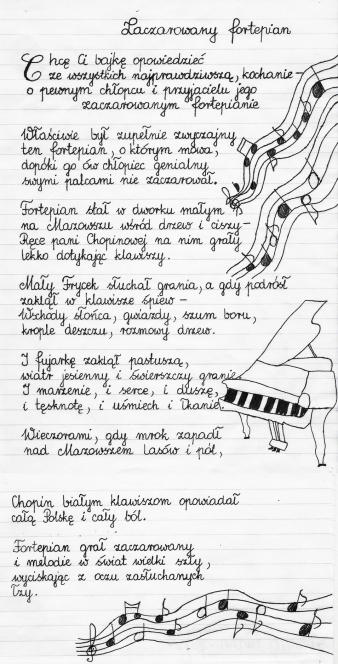 Zaczarowany fortepian
Chcę Ci bajkę opowiedzieć
ze wszystkich najprawdziwszą, kochanie –
o pewnym chłopcu i przyjacielu jego
zaczarowanym fortepianie
Właściwie był zupełnie zwyczajny
ten fortepian, o którym mowa,
dopóki go ów chłopiec genialny
swymi palcami nie zaczarował.
Fortepian stał w dworku małym
na Mazowszu wśród drzew i ciszy –
Ręce pani Chopinowej na nim grały
lekko dotykając klawiszy.
Mały Frycek słuchał grania, a gdy podrósł
zaklął w klawisze śpiew –
Wschody słońca, gwiazdy, szum boru,
krople deszczu, rozmowy drzew.
I fujarkę zaklął pastuszą,
wiatr jesienny i świerszczy granie
I marzenie, i serce, i duszę,
i tęsknotę, i uśmiech i łkanie.
Wieczorami, gdy mrok zapadł
nad Mazowszem lasów i pól,
Chopin białym klawiszom opowiadał
całą Polskę i cały ból.
Fortepian grał zaczarowany
i melodie w świat wielki szły,
wyciskając z oczu zasłuchanych
łzy.